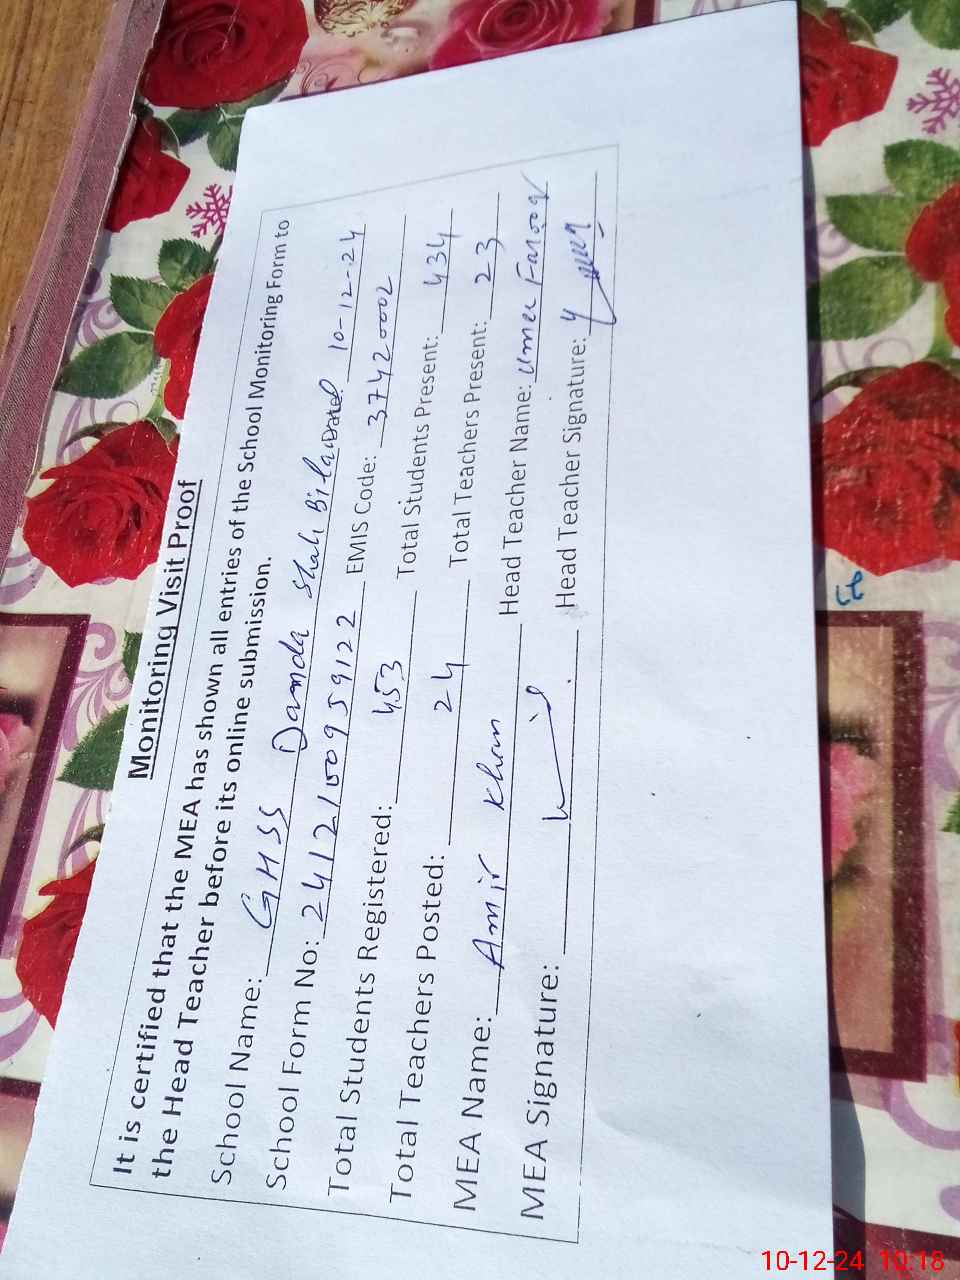 Monitoring Visit Proof
It is certified that the MEA has shown all entries of the School Monitoring Form to
the Head Teacher before its online submission.
School Name: GHSS Danda Shah Bilawal Dated 10-12-24
School Form No: 2412100959122 EMIS Code: 37420002
Total Students Registered: 453 Total Students Present: 434
Total Teachers Posted: 24 Total Teachers Present: 23
MEA Name: Amir Khan Head Teacher Name: Umer Farooq
MEA Signature: Head Teacher Signature:
10-12-24 10:18